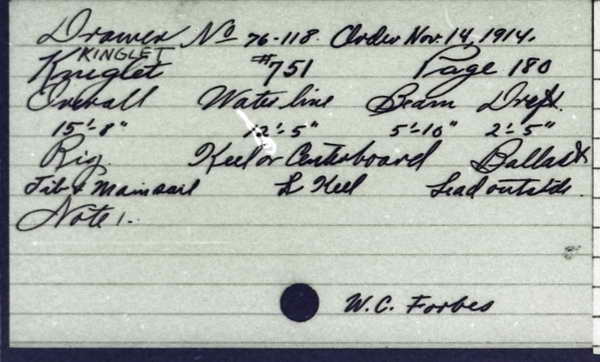 Drawer No 76-118. Order Nov. 14, 1914.
KINGLET
Kinglet #751 Page 180
Overall Water line Beam Draft.
15'-8" 12'-5" 5'-10" 2'-5"
Rig. Keel or Centerboard Ballast
Jib & Mainsail L Keel Lead outside.
Note 1.
W.C. Forbes